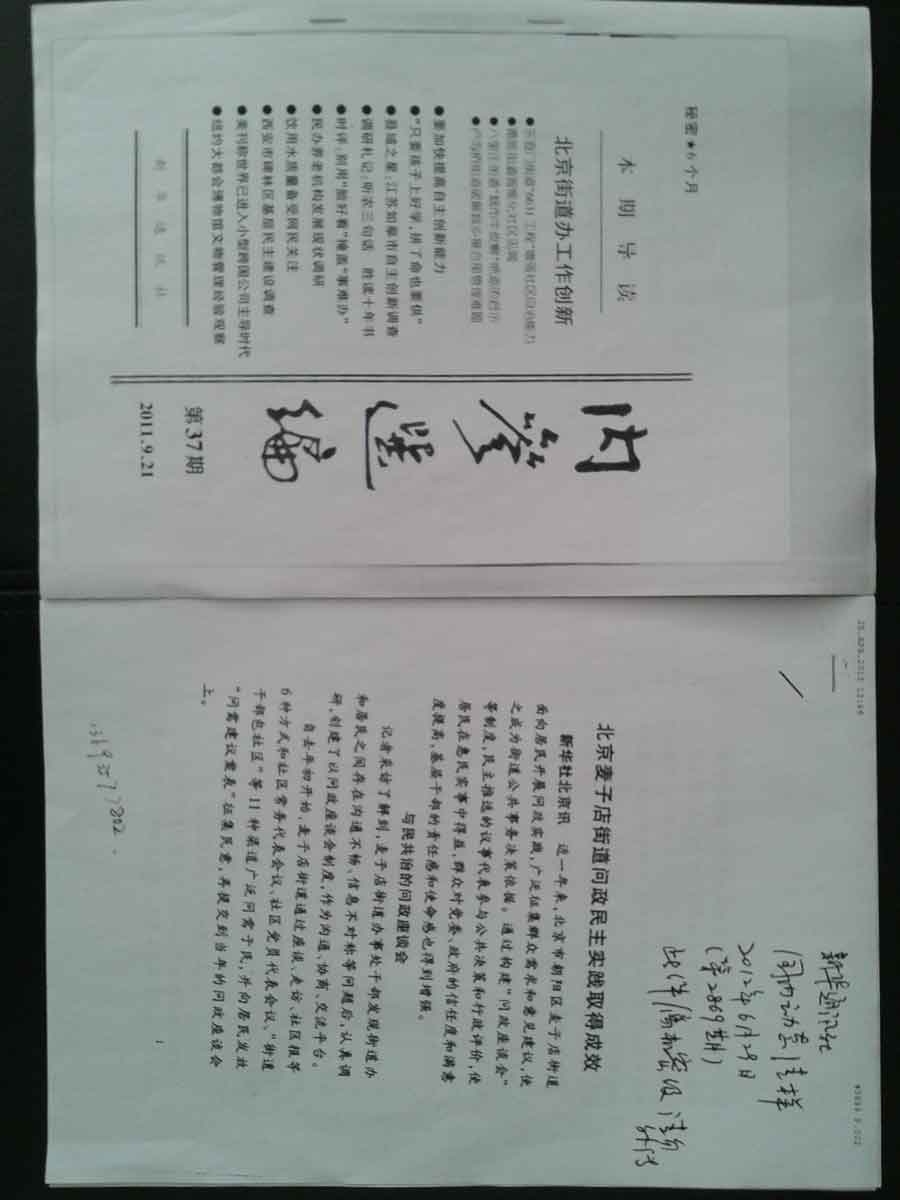 秘密★6个月
本期导读
北京街道办工作创新
●要加快提高自主创新能力
●“只要孩子上好学，拼了命也要供”
●县域之星：江苏如皋市自主创新调查
●调研札记：听农三句话 胜读十年书
●时评：别用“脸好看”掩盖“事难办”
●民办养老机构发展现状调研
●饮用水质量备受网民关注
●西安市碑林区基层民主建设调查
●美刊称世界已进入小型跨国公司主导时代
●纽约大都会博物馆文物管理经验观察
内参选编
第37期
2011.9.21
新华通讯社
国内动态清样
2012年6月29日
(第2869期)
此件属秘密级 请勿
外传
北京麦子店街道问政民主实践取得成效
新华社北京讯 近一年来，北京市朝阳区麦子店街道
面向居民开展问政实践，广泛征集群众需求和意见建议，使
之成为街道公共事务决策依据。通过构建“问政座谈会”
等制度，民主推选的议事代表参与公共决策和行政评价，使
居民在惠民实事中得益，群众对党委、政府的信任度和满意
度提高，基层干部的责任感和使命感也得到增强。
与民共治的问政座谈会
记者采访了解到，麦子店街道办事处干部发现街道办
和居民之间存在沟通不畅、信息不对称等问题后，认真调
研，创建了以问政座谈会制度，作为沟通、协商、交流平台。
自去年初开始，麦子店街道通过座谈、走访、社区报等
6种方式和社区常务代表会议、社区党员代表会议、“街道
干部包社区”等11种渠道广泛问需于民，并向居民发放
“问需建议袁表”征集民意，再提交到当年的问政座谈会
上。
1